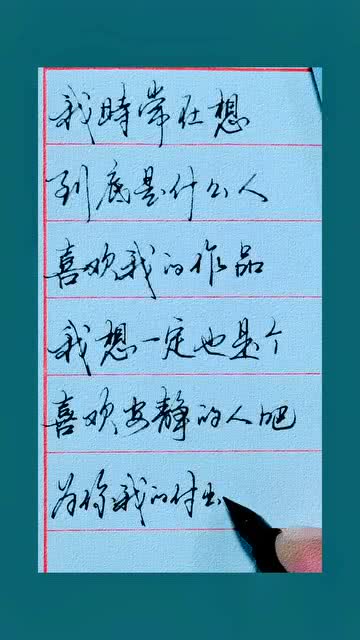 我時常在想
到底是什么人
喜欢我的作品
我想一定也是个
喜欢安静的人吧
为你我的付出